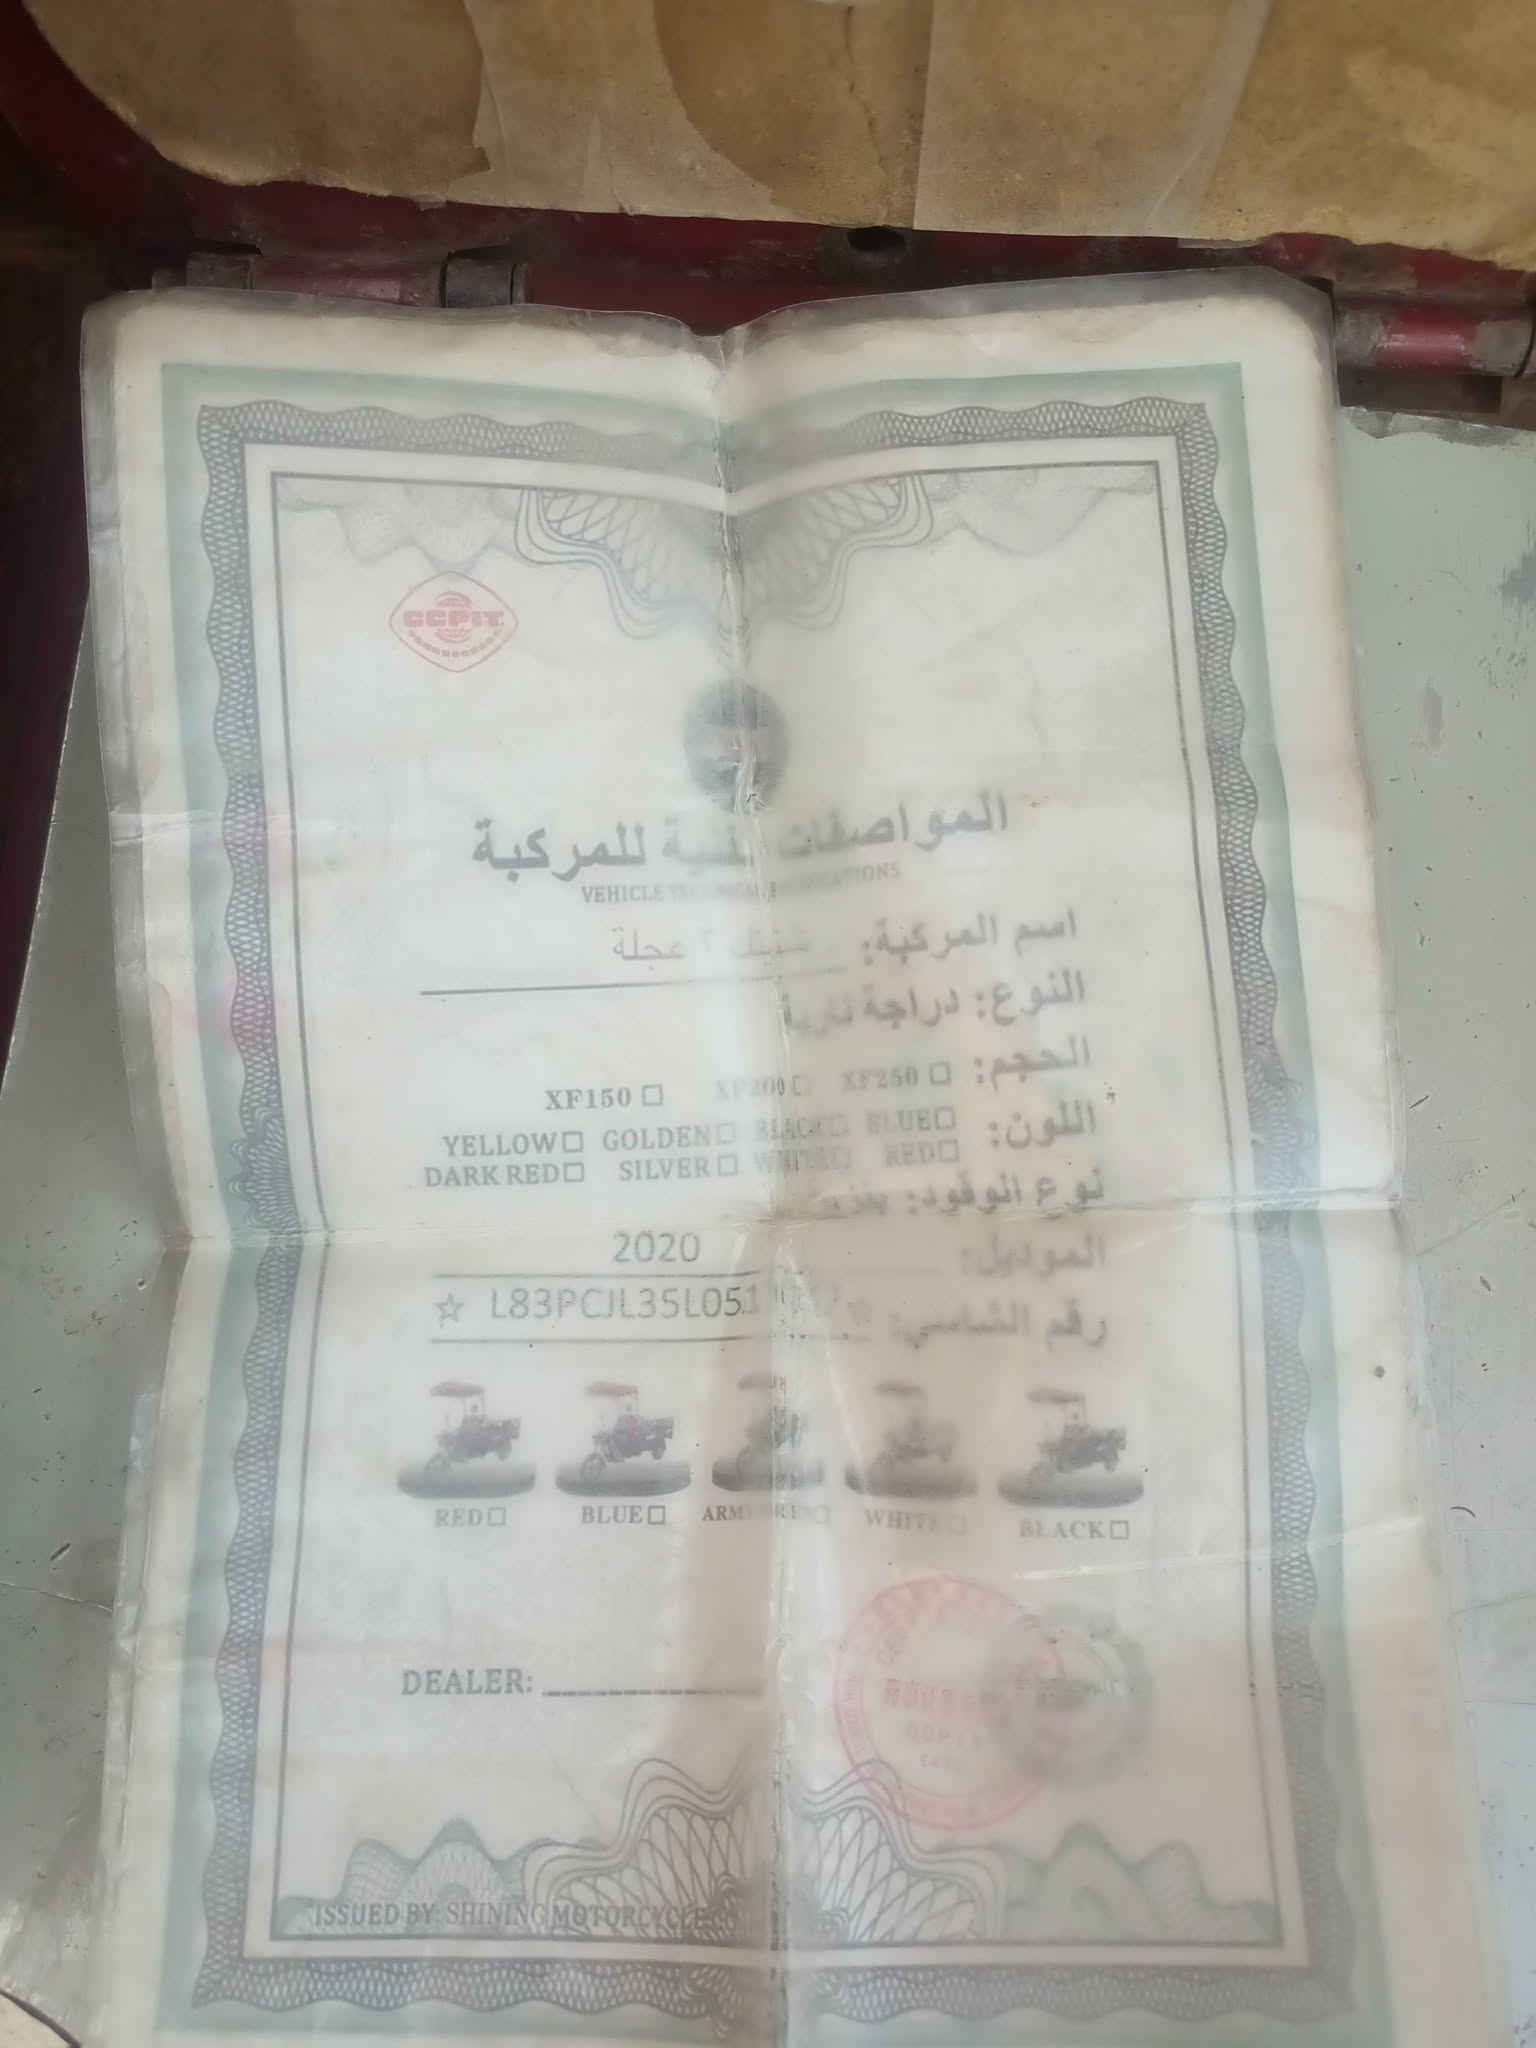 CCPIT
المواصفات للمركبة
VEHICLE
اسم المركبة: عجلة
النوع: دراجة نارية
الحجم: XF250 □ XF200 □ XF150 □
اللون: BLUE □ BLACK □ GOLDEN □ YELLOW □
RED □ WHITE □ SILVER □ DARK RED □
نوع الوقود:
الموديل: 2020
رقم الشاسي: ☆ L83PCJL35L051
RED □ BLUE □ WHITE □ BLACK □
DEALER:
CCPIT
ISSUED BY: SHINING MOTORCYCLE